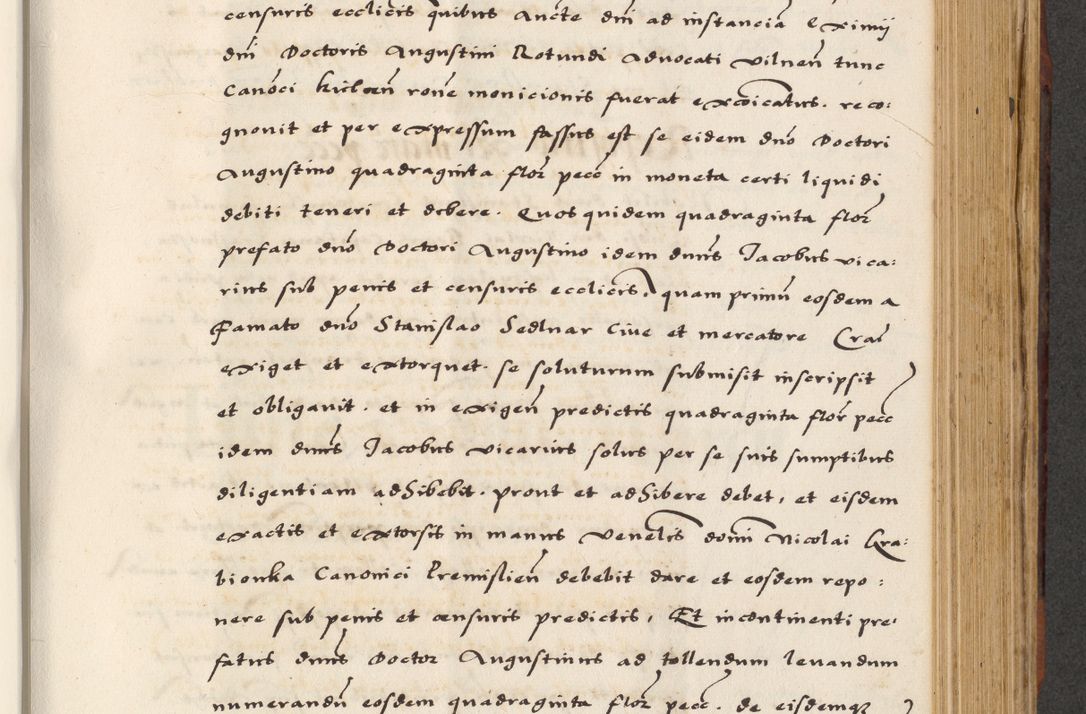 censuris ecclicis quibus aucte dni ad instancia Eximij
dni Doctoris Augustini Rotundi advocati vilnen tunc
Canoci kielcen rone monicionis fuerat excoicatus. reco:
gnovit et per expressum fassus est se eidem dno Doctori
Augustino quadraginta flor pecc in moneta certi liquidi
debiti teneri et debere. Quos quidem quadraginta flor
prefato dno Doctori Augustino idem dnus Jacobus vica:
rius sub penis et censuris ecclicis, quam primu eosdem a
Famato dno Stanislao Sedlnar cive et mercatore Cra
exiget et extorquet. se soluturum submisit inscripsit
et obligavit. et in exigen predictis quadraginta flor pecc
idem dnus Jacobus vicarius solus per se suis sumptibus
diligentiam adhibebit. prout et adhibere debet, et eisdem
exactis et extorsis in manus venelis domi Nicolai Gra:
bionka Canonici Premislien debebit dare et eosdem repo:
nere sub penis et censuris predictis, Et incontinenti pre:
fatus dnus Doctor Augustinus ad tollendum levandum
numerandu eosdem quadraginta flor pecc. de eisdemqz